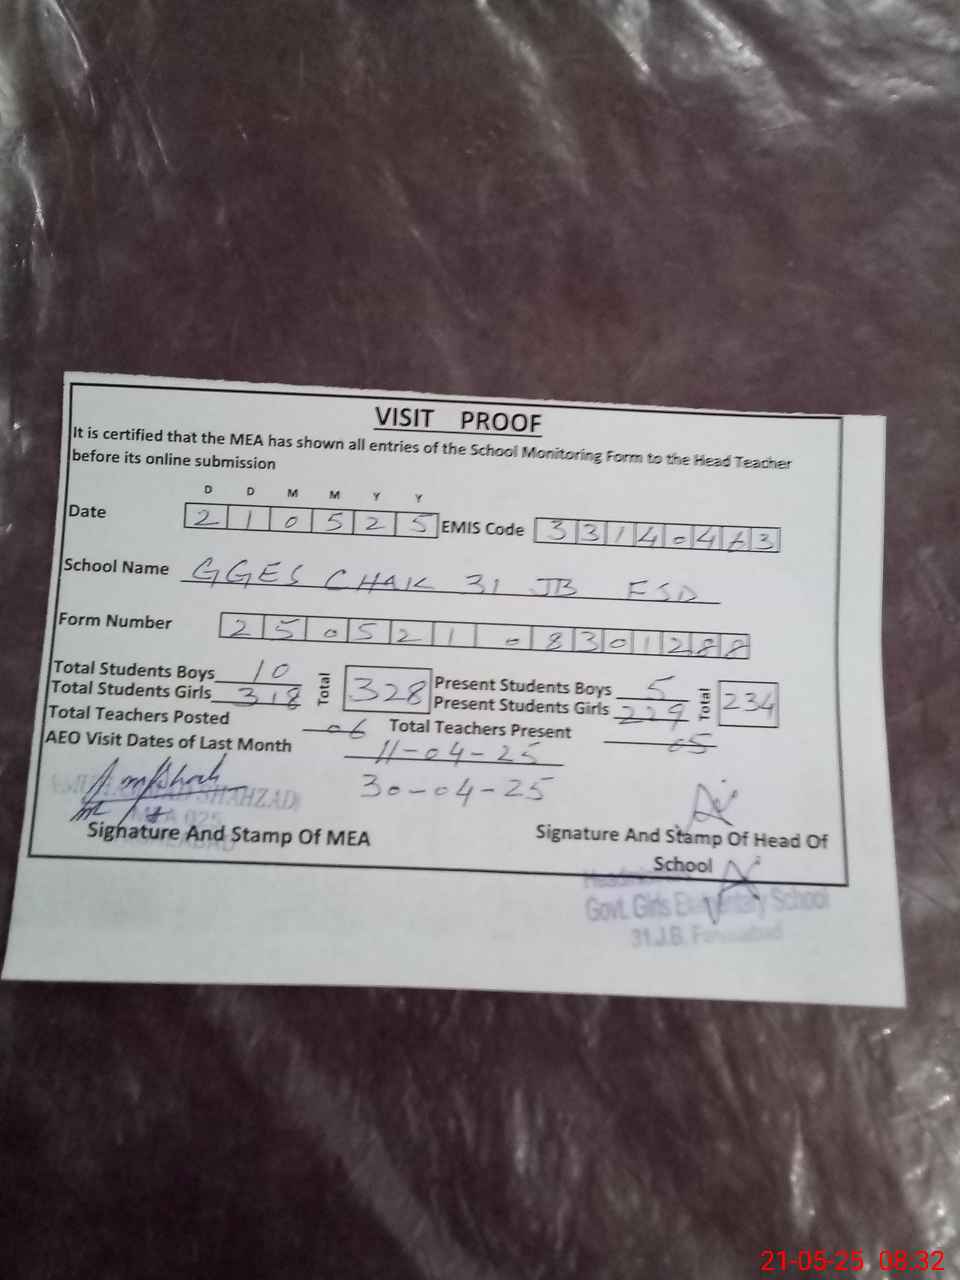 VISIT PROOF
It is certified that the MEA has shown all entries of the School Monitoring Form to the Head Teacher
before its online submission
D D M M Y Y
Date 2 1 0 5 2 5 EMIS Code 3 3 1 4 0 4 6 3
School Name GGES CHAK 31 JB FSD
Form Number 2 5 0 5 2 1 1 0 8 3 0 1 2 8 8
Total Students Boys 10 Total 328 Present Students Boys 5 Total 234
Total Students Girls 318 Present Students Girls 229
Total Teachers Posted 06 Total Teachers Present 05
AEO Visit Dates of Last Month 11-04-25
30-04-25
SHAHZAD
Signature And Stamp Of MEA
Signature And Stamp Of Head Of
School
Govt. Girls Elementary School
31 J.B. Faisalabad
21-05-25 08:32